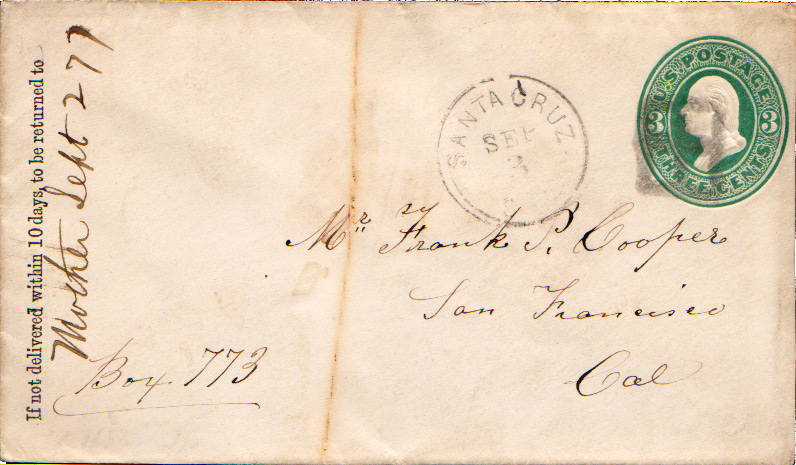 If not delivered within 10 days, to be returned to
Mother Sept 2 77
SANTA CRUZ
SEP
3
U.S. POSTAGE
3 3
THREE CENTS
Mr. Frank P. Cooper
San Francisco
Cal
Box 773